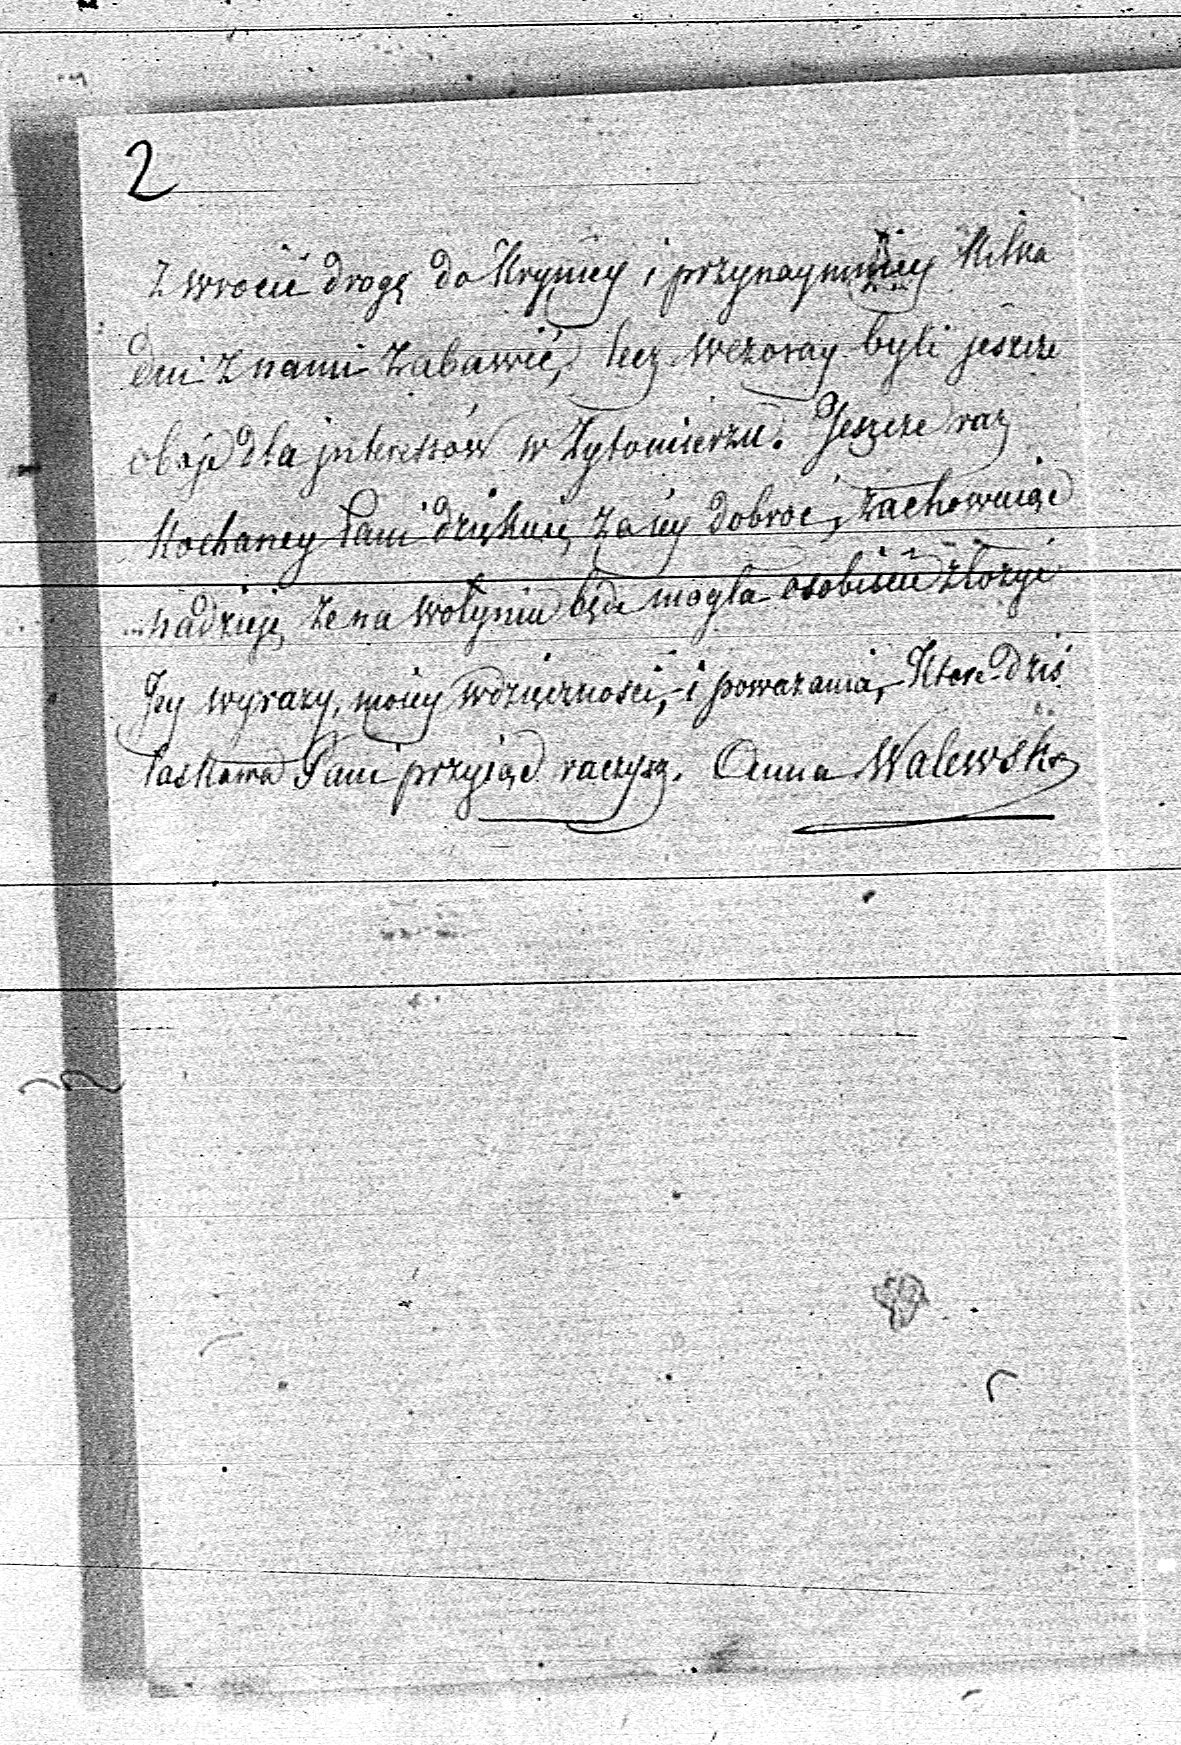 2
Zwrocić drogę do Krynicy i przynaymniey kilka
dni z nami zabawić, lecz wczoray byli jeszcze
oboje dla jnteressów w Zytomierzu. Jeszcze raz
Kochaney Pani dziękuię za iey dobroć, zachowuiąc
nadzieię że na Wołyniu będę mogła osobiście złożyć
Jey wyrazy, moiey wdzięczności, i poważania, Które dziś
łaskawa Pani przyiąć raczysz. Anna Walewska